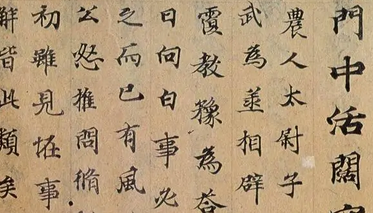 門中活闊
農人太尉子
武為丞相辟
覆教豫為荅
曰向白事必
之而已有風
公怒推問脩
初雖見恠事
解皆此類矣